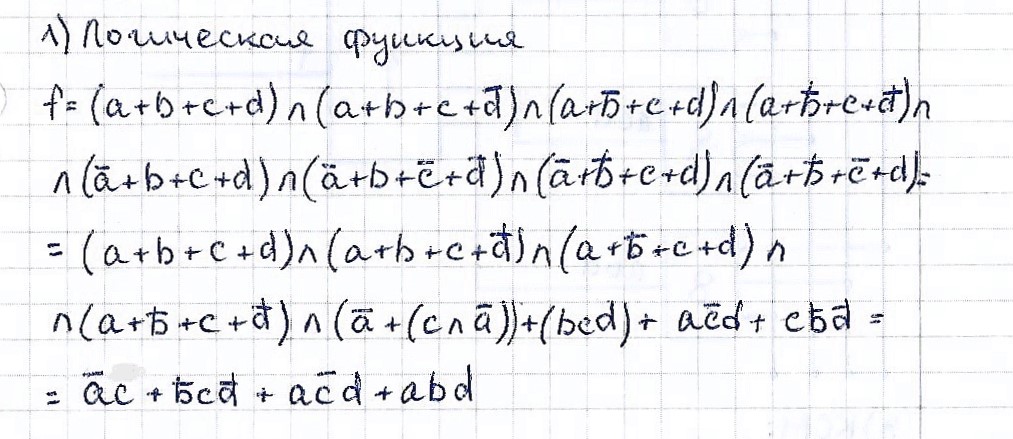 1) Логическая функция
f = (a+b+c+d) ∩ (a+b+c+d̄) ∩ (a+b̄+c+d) ∩ (a+b̄+c+d̄) ∩
∩ (ā+b+c+d) ∩ (ā+b+c̄+d̄) ∩ (ā+b̄+c+d) ∩ (ā+b̄+c̄+d) =
= (a+b+c+d) ∩ (a+b+c+d̄) ∩ (a+b̄+c+d) ∩
∩ (a+b̄+c+d̄) ∩ (ā+(c∩ā))+(bcd)+ ac̄d + cb̄d̄ =
= āc + b̄cd̄ + ac̄d + abd